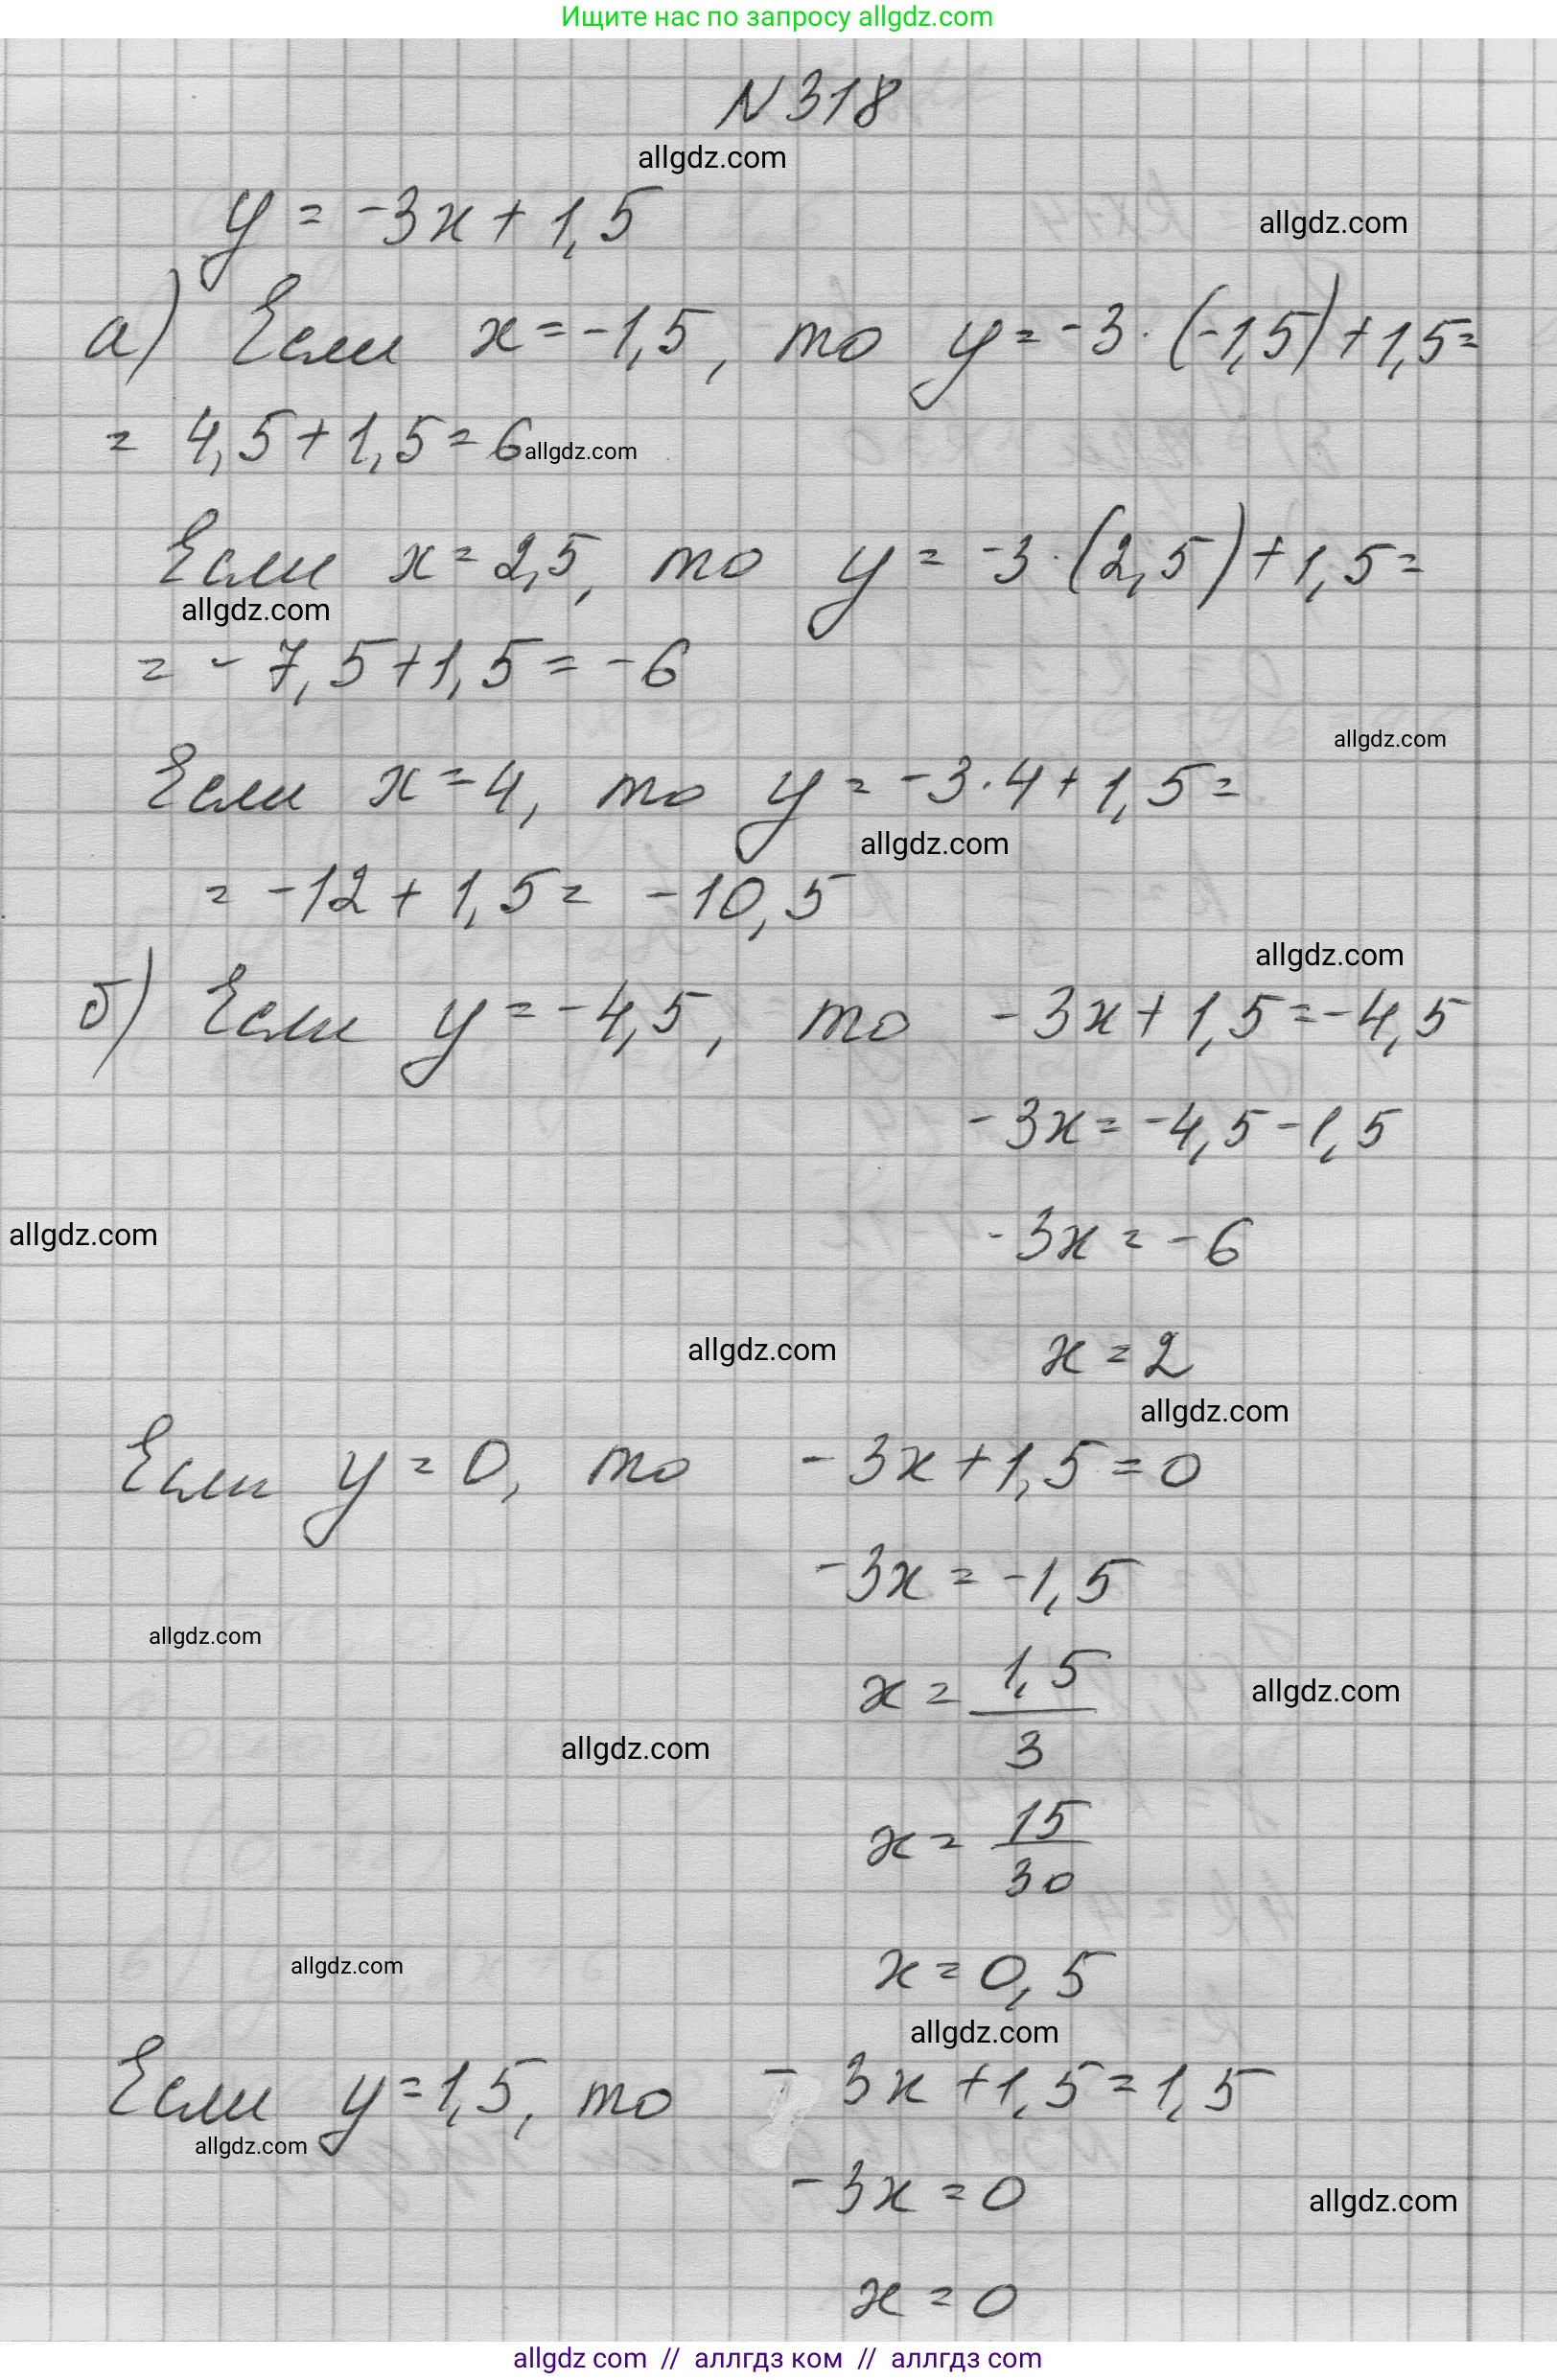 Ищите нас по запросу allgdz.com
N 318
allgdz.com
y = -3x + 1,5
allgdz.com
а) Если x = -1,5, то y = -3 · (-1,5) + 1,5 =
= 4,5 + 1,5 = 6
allgdz.com
Если x = 2,5, то y = -3 · (2,5) + 1,5 =
allgdz.com
= -7,5 + 1,5 = -6
allgdz.com
Если x = 4, то y = -3 · 4 + 1,5 =
allgdz.com
= -12 + 1,5 = -10,5
allgdz.com
б) Если y = -4,5, то -3x + 1,5 = -4,5
-3x = -4,5 - 1,5
allgdz.com
-3x = -6
allgdz.com
x = 2
allgdz.com
Если y = 0, то -3x + 1,5 = 0
-3x = -1,5
allgdz.com
x = 1,5/3
allgdz.com
allgdz.com
x = 15/30
allgdz.com
x = 0,5
allgdz.com
Если y = 1,5, то -3x + 1,5 = 1,5
allgdz.com
-3x = 0
allgdz.com
x = 0
allgdz com // аллгдз ком // аллгдз com